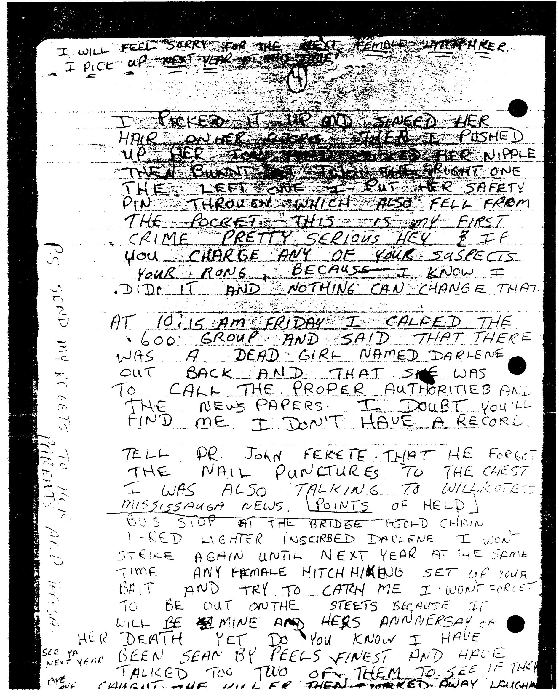 I WILL FEEL SORRY FOR THE NEXT FEMALE
I PICK UP NEXT YEAR
4
I PICKED IT UP AND SINGED HER
HAIR ON HER THEN I PUSHED
UP HER HER NIPPLE
THEN BURNT RIGHT ONE
THE LEFT ONE I PUT HER SAFETY
PIN THROUGH WHICH ALSO FELL FROM
THE POCKET THIS IS MY FIRST
CRIME PRETTY SERIOUS HEY & IF
YOU CHARGE ANY OF YOUR SUSPECTS
YOUR RONG, BECAUSE I KNOW I
DIDE IT AND NOTHING CAN CHANGE THAT
AT 10:15 AM FRIDAY I CALLED THE
600 GROUP AND SAID THAT THERE
WAS A DEAD GIRL NAMED DARLENE
OUT BACK AND THAT SHE WAS
TO CALL THE PROPER AUTHORITIES AND
THE NEWS PAPERS. I DOUBT YOU'LL
FIND ME I DON'T HAVE A RECORD
TELL DR. JOHN FEKETE THAT HE FORGOT
THE NAIL PUNCTURES TO THE CHEST
I WAS ALSO TALKING TO
MISSISSAUGA NEWS. [POINTS OF HELD]
BUS STOP AT THE BRIDGE CHAIN
1-RED LIGHTER INSCIRBED DARLENE I WON'T
STRIKE AGAIN UNTIL NEXT YEAR AT THE SAME
TIME ANY FEMALE HITCH HIKING SET UP YOUR
BAIT AND TRY TO CATCH ME I WON'T FORGET
TO BE OUT ON THE STEETS BECAUSE IT
WILL BE MINE AND HERS ANNIVERSAY OF
HER DEATH YET DO YOU KNOW I HAVE
BEEN SEAN BY PEELS FINEST AND HAVE
TALKED TOO TWO OF THEM TO SEE IF THEY
CAUGHT THE KILLER THEN WALKED AWAY LAUGHING
PS SEND MY REGRETS TO HER
PARENTS AND
SEE YA
NEXT YEAR
BYE